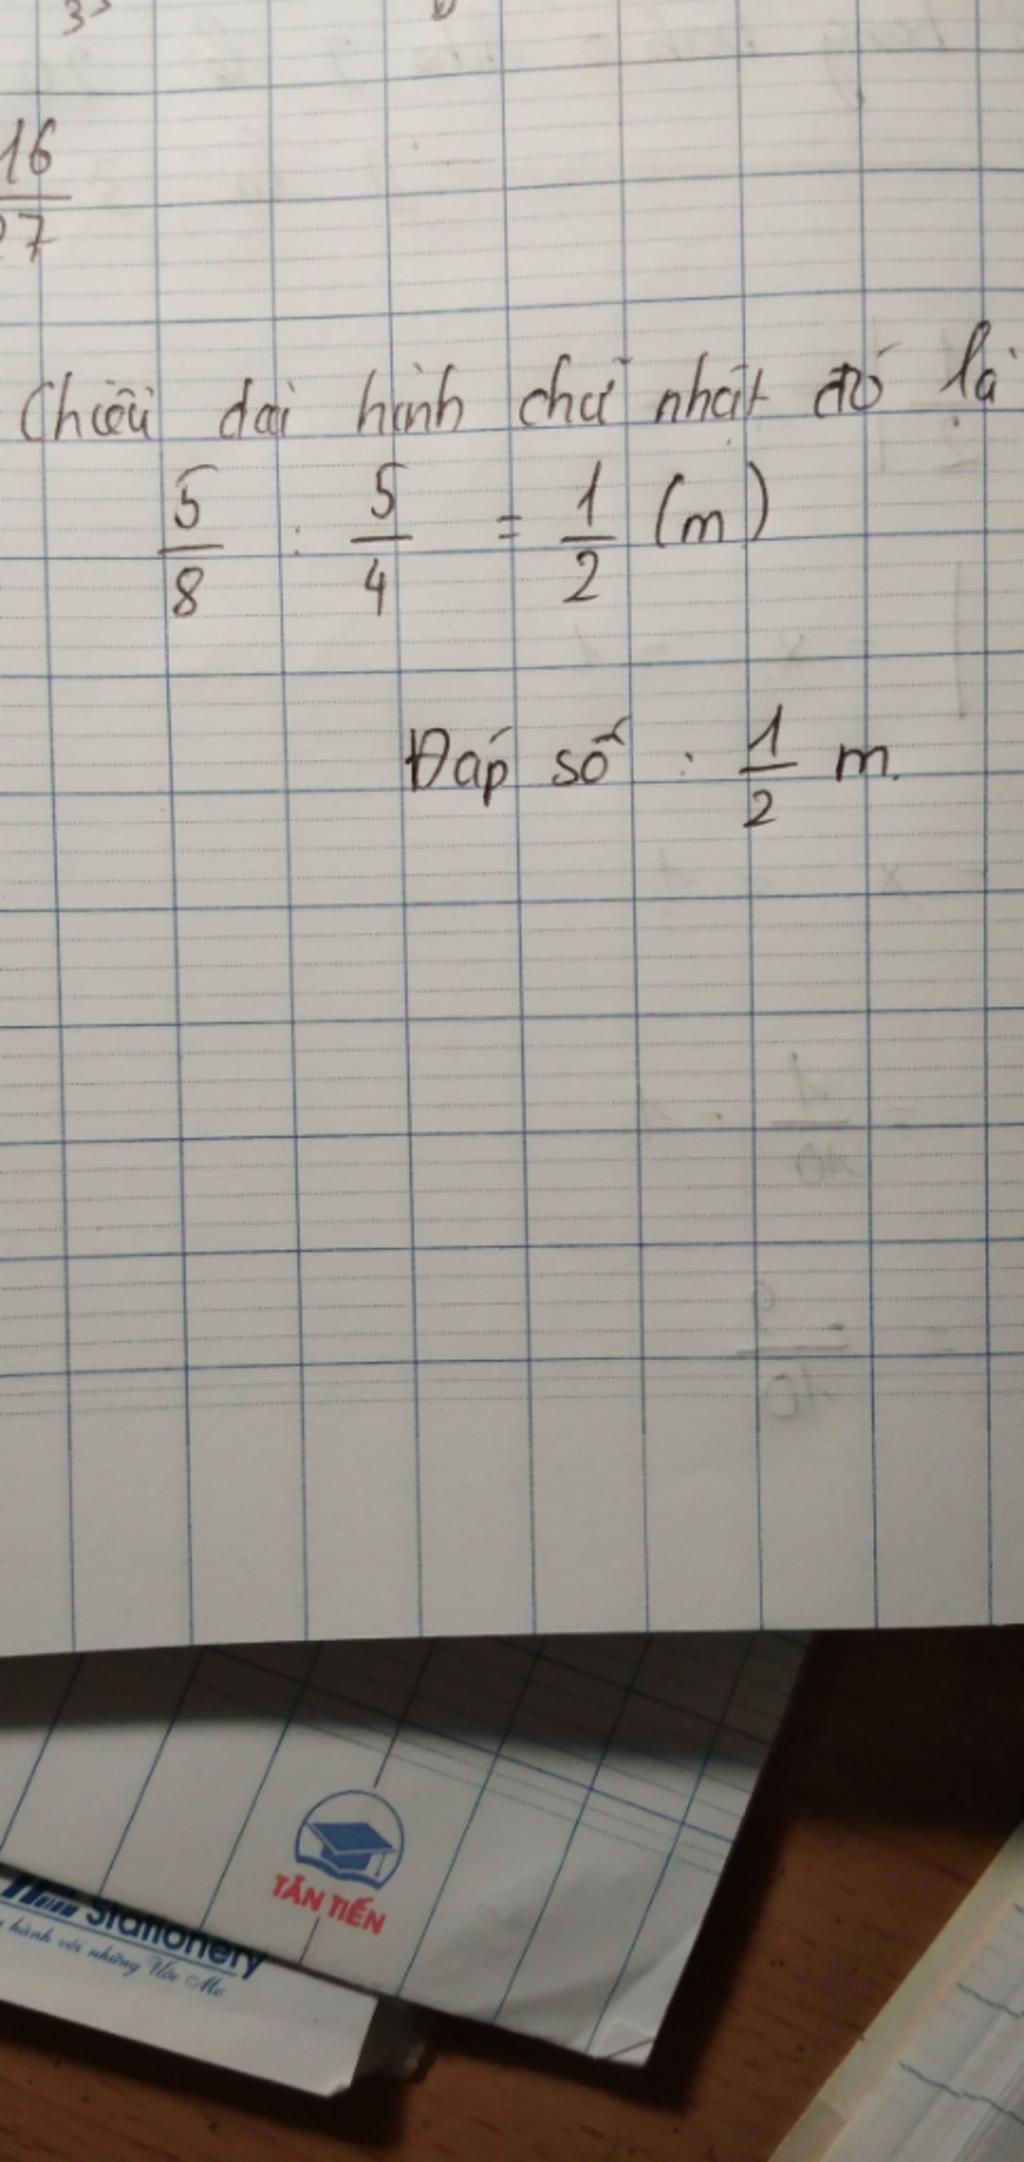 16
27
Chiều dài hình chữ nhật đó là
5/8 : 5/4 = 1/2 (m)
Đáp số : 1/2 m.
TÂN TIẾN
Stationery
hành với những Ước Mơ